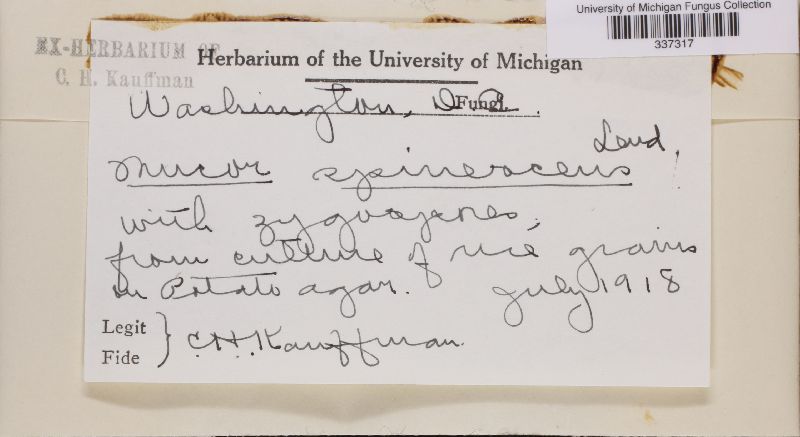 University of Michigan Fungus Collection
337317
EX-HERBARIUM OF
C. H. Kauffman
Herbarium of the University of Michigan
Fungi
Washington, D.C.
Mucor spinescens Lend.
with zygospores,
from culture of rice grains
in Potato agar. July 1918
Legit
Fide } C.H. Kauffman.